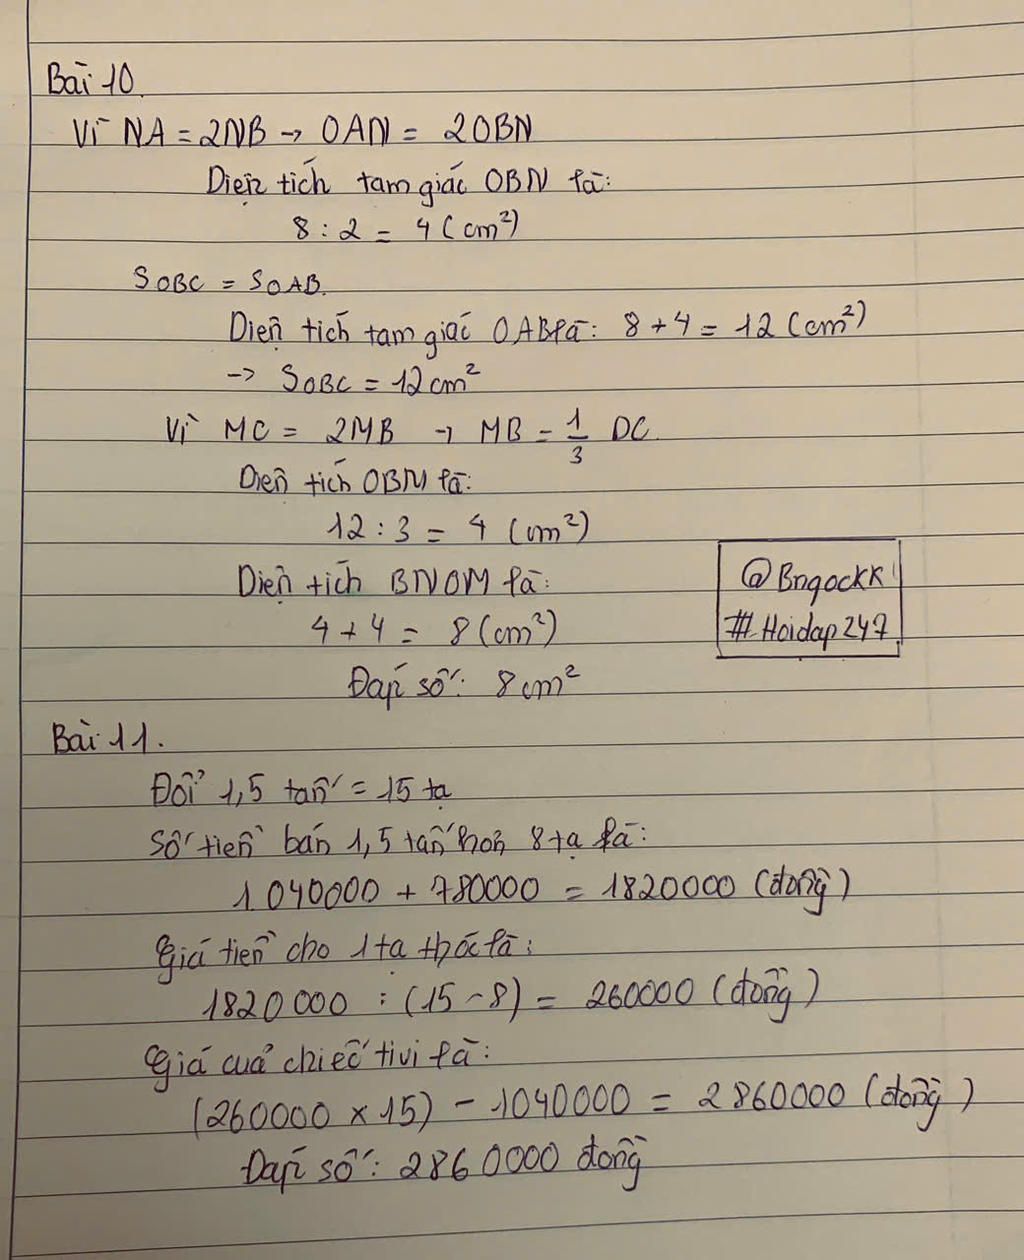 Bài 10.
Vì NA = 2NB → OAN = 2OBN
Diện tích tam giác OBN là:
8 : 2 = 4 (cm²)
SOBC = SOAB.
Diện tích tam giác OAB là: 8 + 4 = 12 (cm²)
→ SOBC = 12 cm²
Vì MC = 2MB → MB = 1/3 DC.
Diện tích OBM là:
12 : 3 = 4 (cm²)
Diện tích BNOM là:
4 + 4 = 8 (cm²)
Đáp số: 8 cm²
@Bngockk
#Hoidap247
Bài 11.
Đổi 1,5 tấn = 15 tạ
Số tiền bán 1,5 tấn hơn 8 tạ là:
1040000 + 780000 = 1820000 (đồng)
Giá tiền cho 1 tạ thóc là:
1820000 : (15 - 8) = 260000 (đồng)
Giá của chiếc tivi là:
(260000 x 15) - 1040000 = 2860000 (đồng)
Đáp số: 2860000 đồng